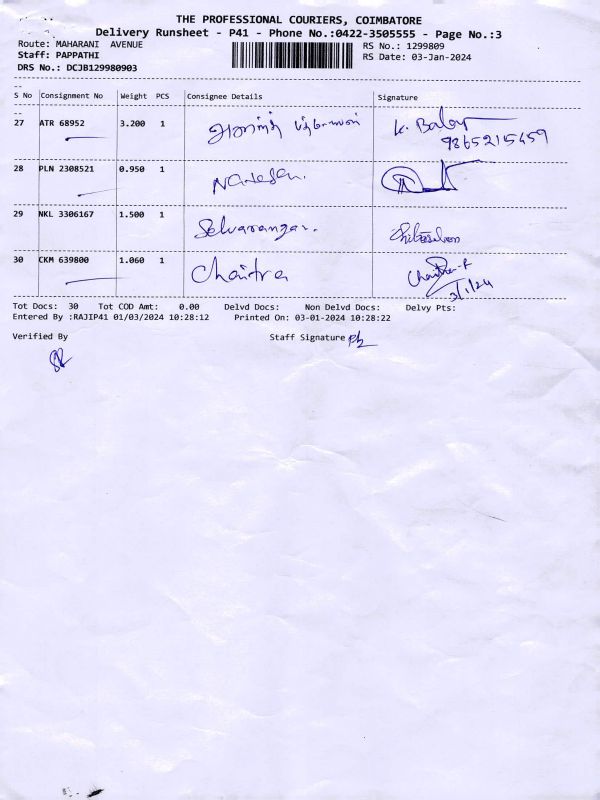 THE PROFESSIONAL COURIERS, COIMBATORE
Delivery Runsheet - P41 - Phone No.:0422-3505555 - Page No.:3
Route: MAHARANI AVENUE RS No.: 1299809
Staff: PAPPATHI RS Date: 03-Jan-2024
DRS No.: DCJB129980903
S No Consignment No Weight PCS Consignee Details Signature
27 ATR 68952 3.200 1 K. Babu
9865215459
28 PLN 2308521 0.950 1 Natesan.
29 NKL 3306167 1.500 1 Selvarangar.
30 CKM 639800 1.060 1 Chaitra Chaitra-R
3/1/24
Tot Docs: 30 Tot COD Amt: 0.00 Delvd Docs: Non Delvd Docs: Delvy Pts:
Entered By :RAJIP41 01/03/2024 10:28:12 Printed On: 03-01-2024 10:28:22
Verified By Staff Signature